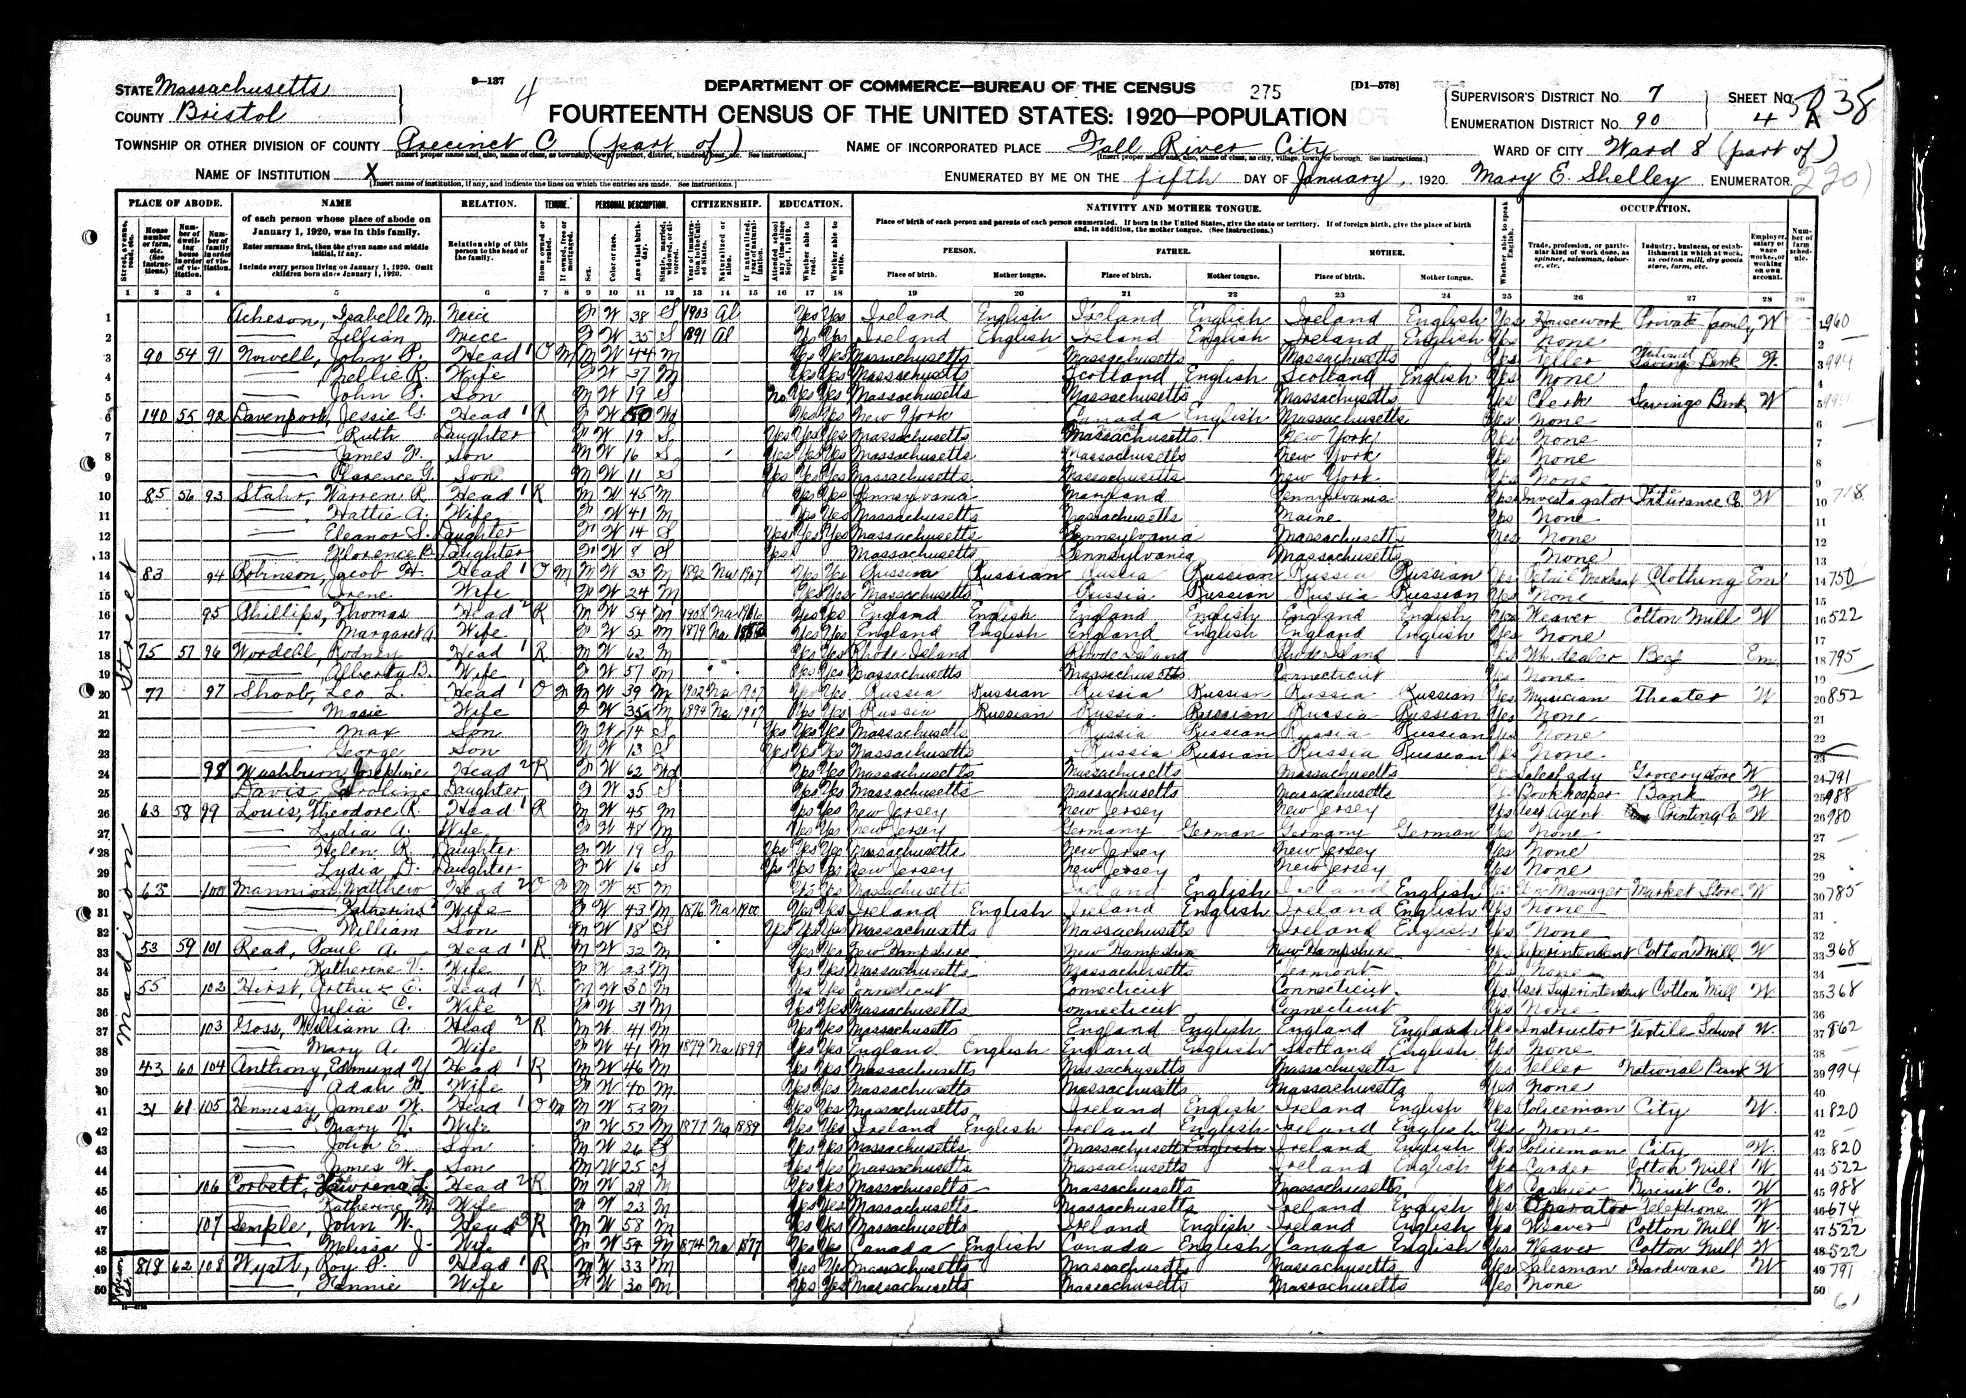 9—137
4
DEPARTMENT OF COMMERCE—BUREAU OF THE CENSUS
275
[D1—578]
STATE Massachusetts
COUNTY Bristol
FOURTEENTH CENSUS OF THE UNITED STATES: 1920—POPULATION
SUPERVISOR'S DISTRICT NO. 7
ENUMERATION DISTRICT NO. 90
SHEET NO. 4 A
TOWNSHIP OR OTHER DIVISION OF COUNTY Precinct C (part of)
NAME OF INCORPORATED PLACE Fall River City
WARD OF CITY Ward 8 (part of)
NAME OF INSTITUTION X
ENUMERATED BY ME ON THE fifth DAY OF January, 1920. Mary E. Shelley ENUMERATOR.
PLACE OF ABODE. NAME RELATION. TENURE. PERSONAL DESCRIPTION. CITIZENSHIP. EDUCATION. NATIVITY AND MOTHER TONGUE. OCCUPATION.
of each person whose place of abode on January 1, 1920, was in this family.
Enter surname first, then the given name and middle initial, if any.
Include every person living on January 1, 1920. Omit children born since January 1, 1920.
Relationship of this person to the head of the family.
Place of birth of each person and parents of each person enumerated. If born in the United States, give the state or territory. If of foreign birth, give the place of birth and, in addition, the mother tongue. (See instructions.)
PERSON. FATHER. MOTHER.
Place of birth. Mother tongue. Place of birth. Mother tongue. Place of birth. Mother tongue.
1 2 3 4 5 6 7 8 9 10 11 12 13 14 15 16 17 18 19 20 21 22 23 24 25 26 27 28 29
Madison Street
1 Acheson, Isabelle M. Niece F W 38 S 1903 Al Yes Yes Ireland English Ireland English Ireland English Yes Housework Private family W 960
2 Lillian Niece F W 35 S 1891 Al Yes Yes Ireland English Ireland English Ireland English Yes None
3 90 54 91 Nowell, John P. Head 1 O M M W 44 M Yes Yes Massachusetts Massachusetts Massachusetts Yes Teller Bank W 994
4 Nellie R. Wife F W 37 M Yes Yes Massachusetts Scotland English Scotland English Yes None
5 John Son M W 19 S No Yes Yes Massachusetts Massachusetts Massachusetts Yes Clerk Savings Bank W
6 190 55 92 Davenport, Jessie G. Head 1 R F W 50 Wd Yes Yes New York Canada English Massachusetts Yes None
7 Ruth Daughter F W 19 S Yes Yes Yes Massachusetts Massachusetts New York Yes None
8 James Son M W 16 S Yes Yes Yes Massachusetts Massachusetts New York Yes None
9 Clarence G. Son M W 11 S Yes Yes Yes Massachusetts Massachusetts New York Yes None
10 85 56 93 Stahr, Warren R. Head 1 R M W 45 M Yes Yes Pennsylvania Maryland Pennsylvania Yes Investagator Insurance Co. W 718
11 Hattie A. Wife F W 41 M Yes Yes Massachusetts Massachusetts Maine Yes None
12 Eleanor S. Daughter F W 14 S Yes Yes Yes Massachusetts Pennsylvania Massachusetts Yes None
13 Florence B. Daughter F W 8 S Yes Massachusetts Pennsylvania Massachusetts None
14 83 94 Robinson, Jacob H. Head 1 O M M W 33 M 1892 Na 1907 Yes Yes Russia Russian Russia Russian Russia Russian Yes Retail Merchant Clothing Em 750
15 Irene Wife F W 24 M Yes Yes Massachusetts Russia Russian Russia Russian Yes None
16 95 Phillips, Thomas Head 2 R M W 54 M 1908 Na 1916 Yes Yes England English England English England English Yes Weaver Cotton Mill W 522
17 Margaret A. Wife F W 52 M 1879 Na Yes Yes England English England English England English Yes None
18 75 57 96 Wordell, Rodney Head 1 R M W 62 M Yes Yes Rhode Island Rhode Island Rhode Island Yes Wh. dealer Beef Em 795
19 Alberta B. Wife F W 57 M Yes Yes Massachusetts Massachusetts Connecticut Yes None
20 77 97 Shoob, Leo L. Head 1 O M W 39 M 1902 Na 1907 Yes Yes Russia Russian Russia Russian Russia Russian Yes Musician Theater W 852
21 Masie Wife F W 35 M 1894 Na 1907 Yes Yes Russia Russian Russia Russian Russia Russian Yes None
22 Max Son M W 14 S Yes Yes Yes Massachusetts Russia Russian Russia Russian Yes None
23 George Son M W 13 S Yes Yes Yes Massachusetts Russia Russian Russia Russian Yes None
24 98 Washburn, Josephine Head 2 R F W 62 Wd Yes Yes Massachusetts Massachusetts Massachusetts Yes Saleslady Grocery store W 791
25 Davis, Caroline Daughter F W 35 S Yes Yes Massachusetts Massachusetts Massachusetts Bookkeeper Bank W 988
26 63 58 99 Louis, Theodore R. Head 1 R M W 45 M Yes Yes New Jersey New Jersey New Jersey Yes Agent Printing Co W 980
27 Lydia A. Wife F W 48 M Yes Yes New Jersey Germany German Germany German Yes None
28 Helen R. Daughter F W 19 S Yes Yes Yes Massachusetts New Jersey New Jersey Yes None
29 Lydia D. Daughter F W 16 S Yes Yes Yes New Jersey New Jersey New Jersey Yes None
30 65 100 Mannion, Matthew Head 2 O M W 45 M Yes Yes Massachusetts Ireland English Ireland English Yes Manager Market Store W 785
31 Katherine Wife F W 43 M 1876 Na 1900 Yes Yes Ireland English Ireland English Ireland English Yes None
32 William Son M W 18 S Yes Yes Yes Massachusetts Massachusetts Ireland English Yes None
33 53 59 101 Read, Paul A. Head 1 R M W 32 M Yes Yes New Hampshire New Hampshire New Hampshire Yes Superintendent Cotton Mill W 368
34 Katherine V. Wife F W 23 M Yes Yes Massachusetts Massachusetts Vermont Yes None
35 55 102 Hirst, Arthur E. Head 1 R M W 30 M Yes Yes Connecticut Connecticut Connecticut Yes Asst Superintendent Cotton Mill W 368
36 Julia C. Wife F W 31 M Yes Yes Massachusetts Connecticut Connecticut Yes None
37 103 Goss, William A. Head 2 R M W 41 M Yes Yes Massachusetts England English England English Yes Instructor Textile School W 862
38 Mary A. Wife F W 41 M 1879 Na 1899 Yes Yes England English England English Scotland English Yes None
39 43 60 104 Anthony, Edmund Y. Head 1 R M W 46 M Yes Yes Massachusetts Massachusetts Massachusetts Yes Teller National Bank W 994
40 Adah Wife F W 40 M Yes Yes Massachusetts Massachusetts Massachusetts Yes None
41 31 61 105 Hennessy, James W. Head 1 O M M W 53 M Yes Yes Massachusetts Ireland English Ireland English Yes Policeman City W 820
42 Mary V. Wife F W 52 M 1877 Na 1889 Yes Yes Ireland English Ireland English Ireland English Yes None
43 John E. Son M W 26 S Yes Yes Massachusetts Massachusetts English Ireland English Yes Policeman City W 820
44 James W. Son M W 25 S Yes Yes Massachusetts Massachusetts Ireland English Yes Carder Cotton Mill W 522
45 106 Corbett, Lawrence L. Head 2 R M W 28 M Yes Yes Massachusetts Massachusetts Massachusetts Yes Cashier Biscuit Co. W 988
46 Katherine M. Wife F W 23 M Yes Yes Massachusetts Massachusetts Ireland English Yes Operator Telephone W 674
47 107 Semple, John W. Head 3 R M W 58 M Yes Yes Massachusetts Ireland English Ireland English Yes Weaver Cotton Mill W 522
48 Melissa J. Wife F W 54 M 1874 Na 1877 Yes Yes Canada English Canada English Canada English Yes Weaver Cotton Mill W 522
49 818 62 108 Wyatt, Roy P. Head 1 R M W 33 M Yes Yes Massachusetts Massachusetts Massachusetts Yes Salesman Hardware W 791
50 Fannie Wife F W 30 M Yes Yes Massachusetts Massachusetts Massachusetts Yes None